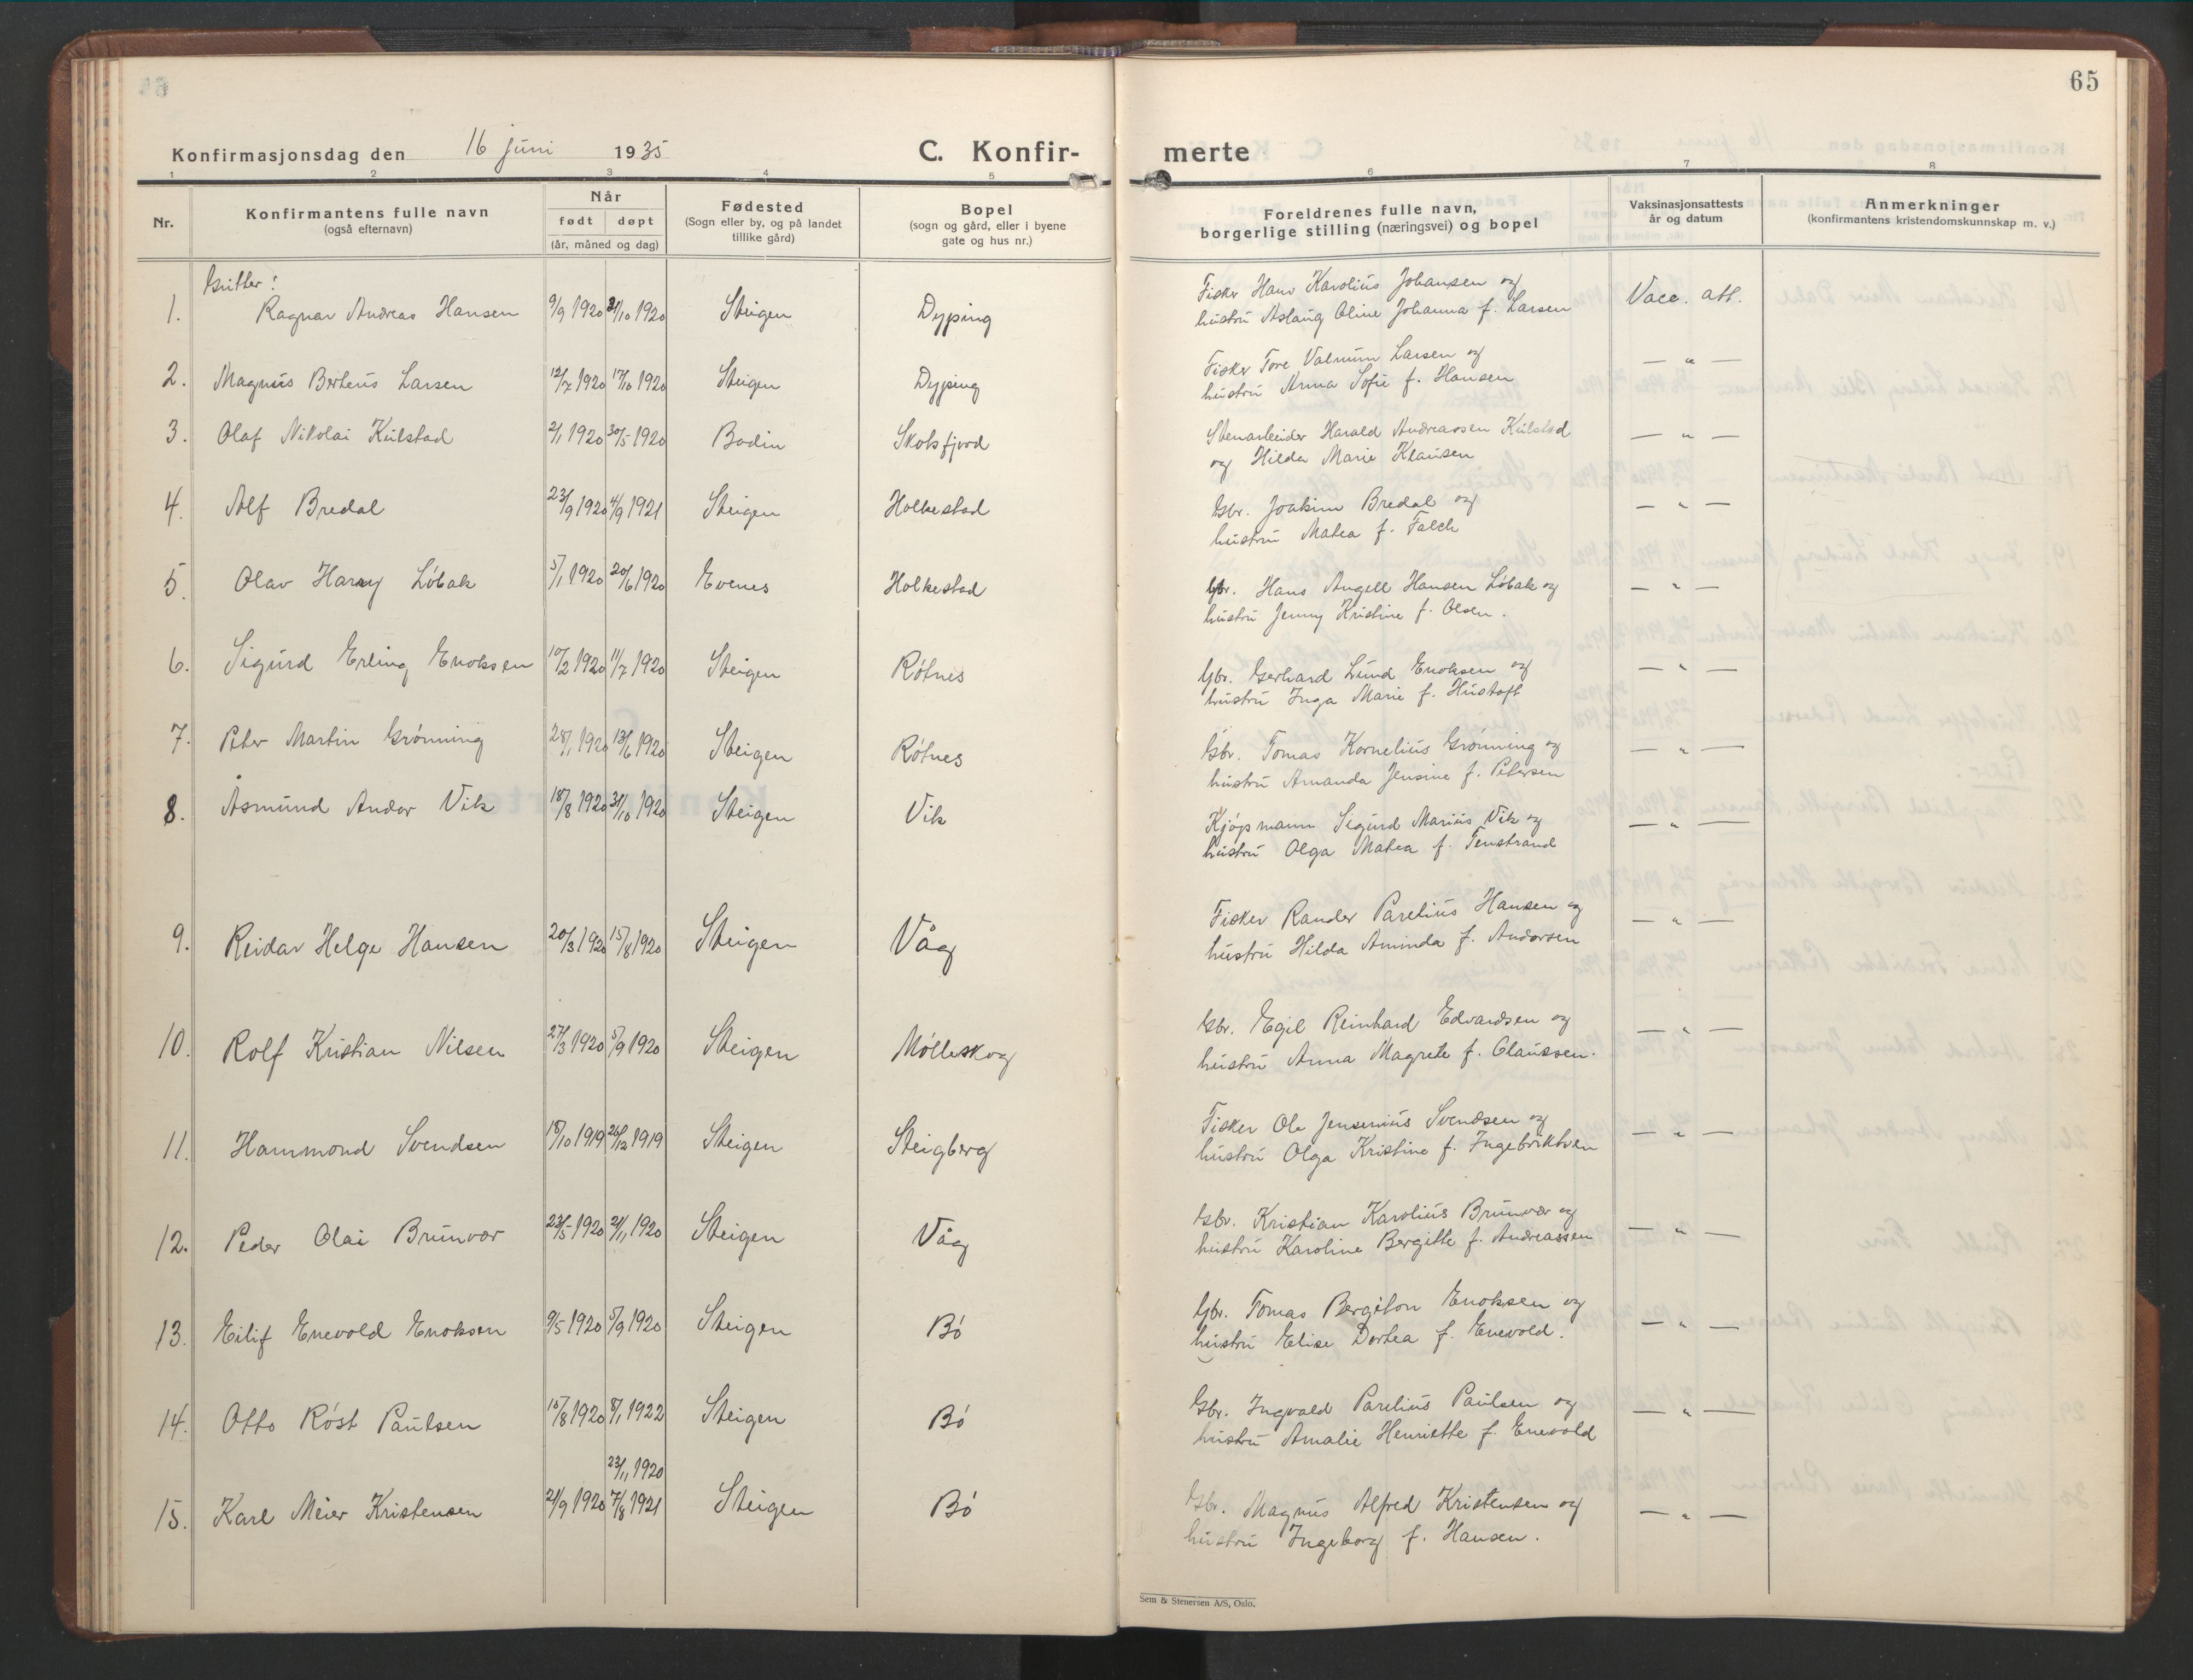 65
Konfirmasjonsdag den 16 juni 1935
C. Konfir-
merte
1 2 3 4 5 6 7 8
Nr.
Konfirmantens fulle navn
(også efternavn)
Når
født døpt
(år, måned og dag)
Fødested
(Sogn eller by, og på landet
tillike gård)
Bopel
(sogn og gård, eller i byene
gate og hus nr.)
Foreldrenes fulle navn,
borgerlige stilling (næringsvei) og bopel
Vaksinasjonsattests
år og datum
Anmerkninger
(konfirmantens kristendomskunnskap m. v.)
Gutter:
1. Ragnar Andreas Hansen 9/9 1920 31/10 1920 Steigen Dyping
Fisker Hans Karolius Johansen og
hustru Aslaug Oline Johanna f. Larsen
Vacc. att.
2. Magnus Berteus Larsen 12/7 1920 17/10 1920 Steigen Dyping
Fisker Tore Valnum Larsen og
hustru Anna Sofie f. Hansen
— " —
3. Olaf Nikolai Kulstad 2/1 1920 30/5 1920 Bodin Skotsfjord
Stenarbeider Harald Andreassen Kulstad
og Hilda Marie Klausen
— " —
4. Alf Bredal 23/9 1920 4/9 1921 Steigen Holkestad
Gbr. Joakim Bredal og
hustru Matea f. Falch
— " —
5. Olav Harry Løbak 5/1 1920 20/6 1920 Evenes Holkestad
Gbr. Hans Angell Hansen Løbak og
hustru Jenny Kristine f. Olsen.
— " —
6. Sigurd Erling Enoksen 10/2 1920 11/7 1920 Steigen Røtnes
Gbr. Gerhard Lund Enoksen og
hustru Inga Marie f. Hustoft
— " —
7. Peter Martin Grønning 28/1 1920 13/6 1920 Steigen Røtnes
Gbr. Tomas Kornelius Grønning og
hustru Amanda Jensine f. Petersen
— " —
8. Åsmund Andor Vik 18/8 1920 31/10 1920 Steigen Vik
Kjøpmann Sigurd Marius Vik og
hustru Olga Matea f. Tenstrand
— " —
9. Reidar Helge Hansen 20/3 1920 15/8 1920 Steigen Våg
Fisker Rander Parelius Hansen og
hustru Hilda Aminda f. Andorsen
— " —
10. Rolf Kristian Nilsen 27/3 1920 5/9 1920 Steigen Mølleskog
Gbr. Egil Reinhard Edvardsen og
hustru Anna Magrete f. Claussen.
— " —
11. Hammond Svendsen 18/10 1919 26/12 1919 Steigen Steigberg
Fisker Ole Jensenius Svendsen og
hustru Olga Kristine f. Ingebriktsen
— " —
12. Peder Olai Brunvær 23/5 1920 21/11 1920 Steigen Våg
Gbr. Kristian Karolius Brunvær og
hustru Karoline Bergitte f. Andreassen
— " —
13. Eilif Enevold Enoksen 9/5 1920 5/9 1920 Steigen Bø
Gbr. Tomas Bergiton Enoksen og
hustru Elise Dortea f. Enevold.
— " —
14. Otto Røst Paulsen 15/8 1920 8/1 1922 Steigen Bø
Gbr. Ingvald Parelius Paulsen og
hustru Amalie Henriette f. Enevold
— " —
23/11 1920
15. Karl Meier Kristensen 21/9 1920 7/8 1921 Steigen Bø
Gbr. Magnus Alfred Kristensen og
hustru Ingeborg f. Hansen.
— " —
Sem & Stenersen A/S, Oslo.